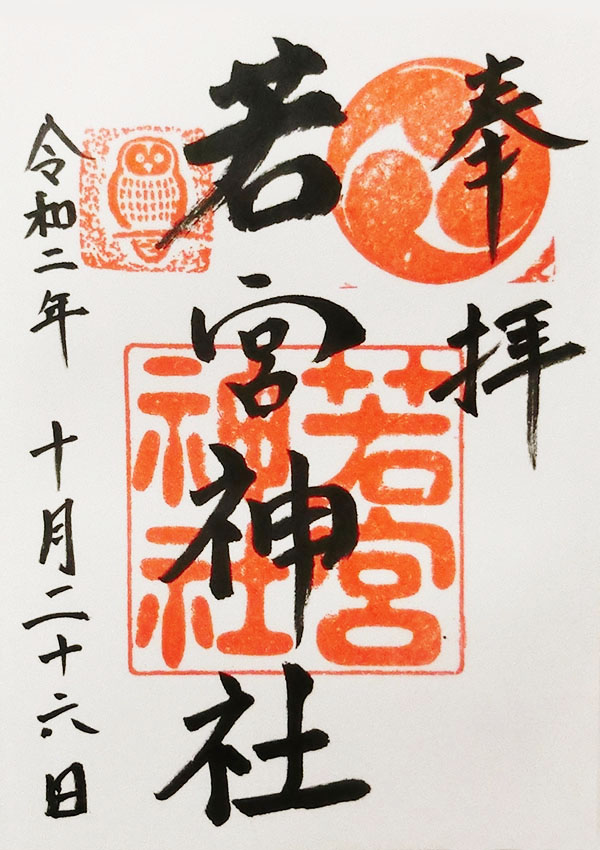 奉拝
若宮神社
若宮
神社
令和二年 十月二十六日